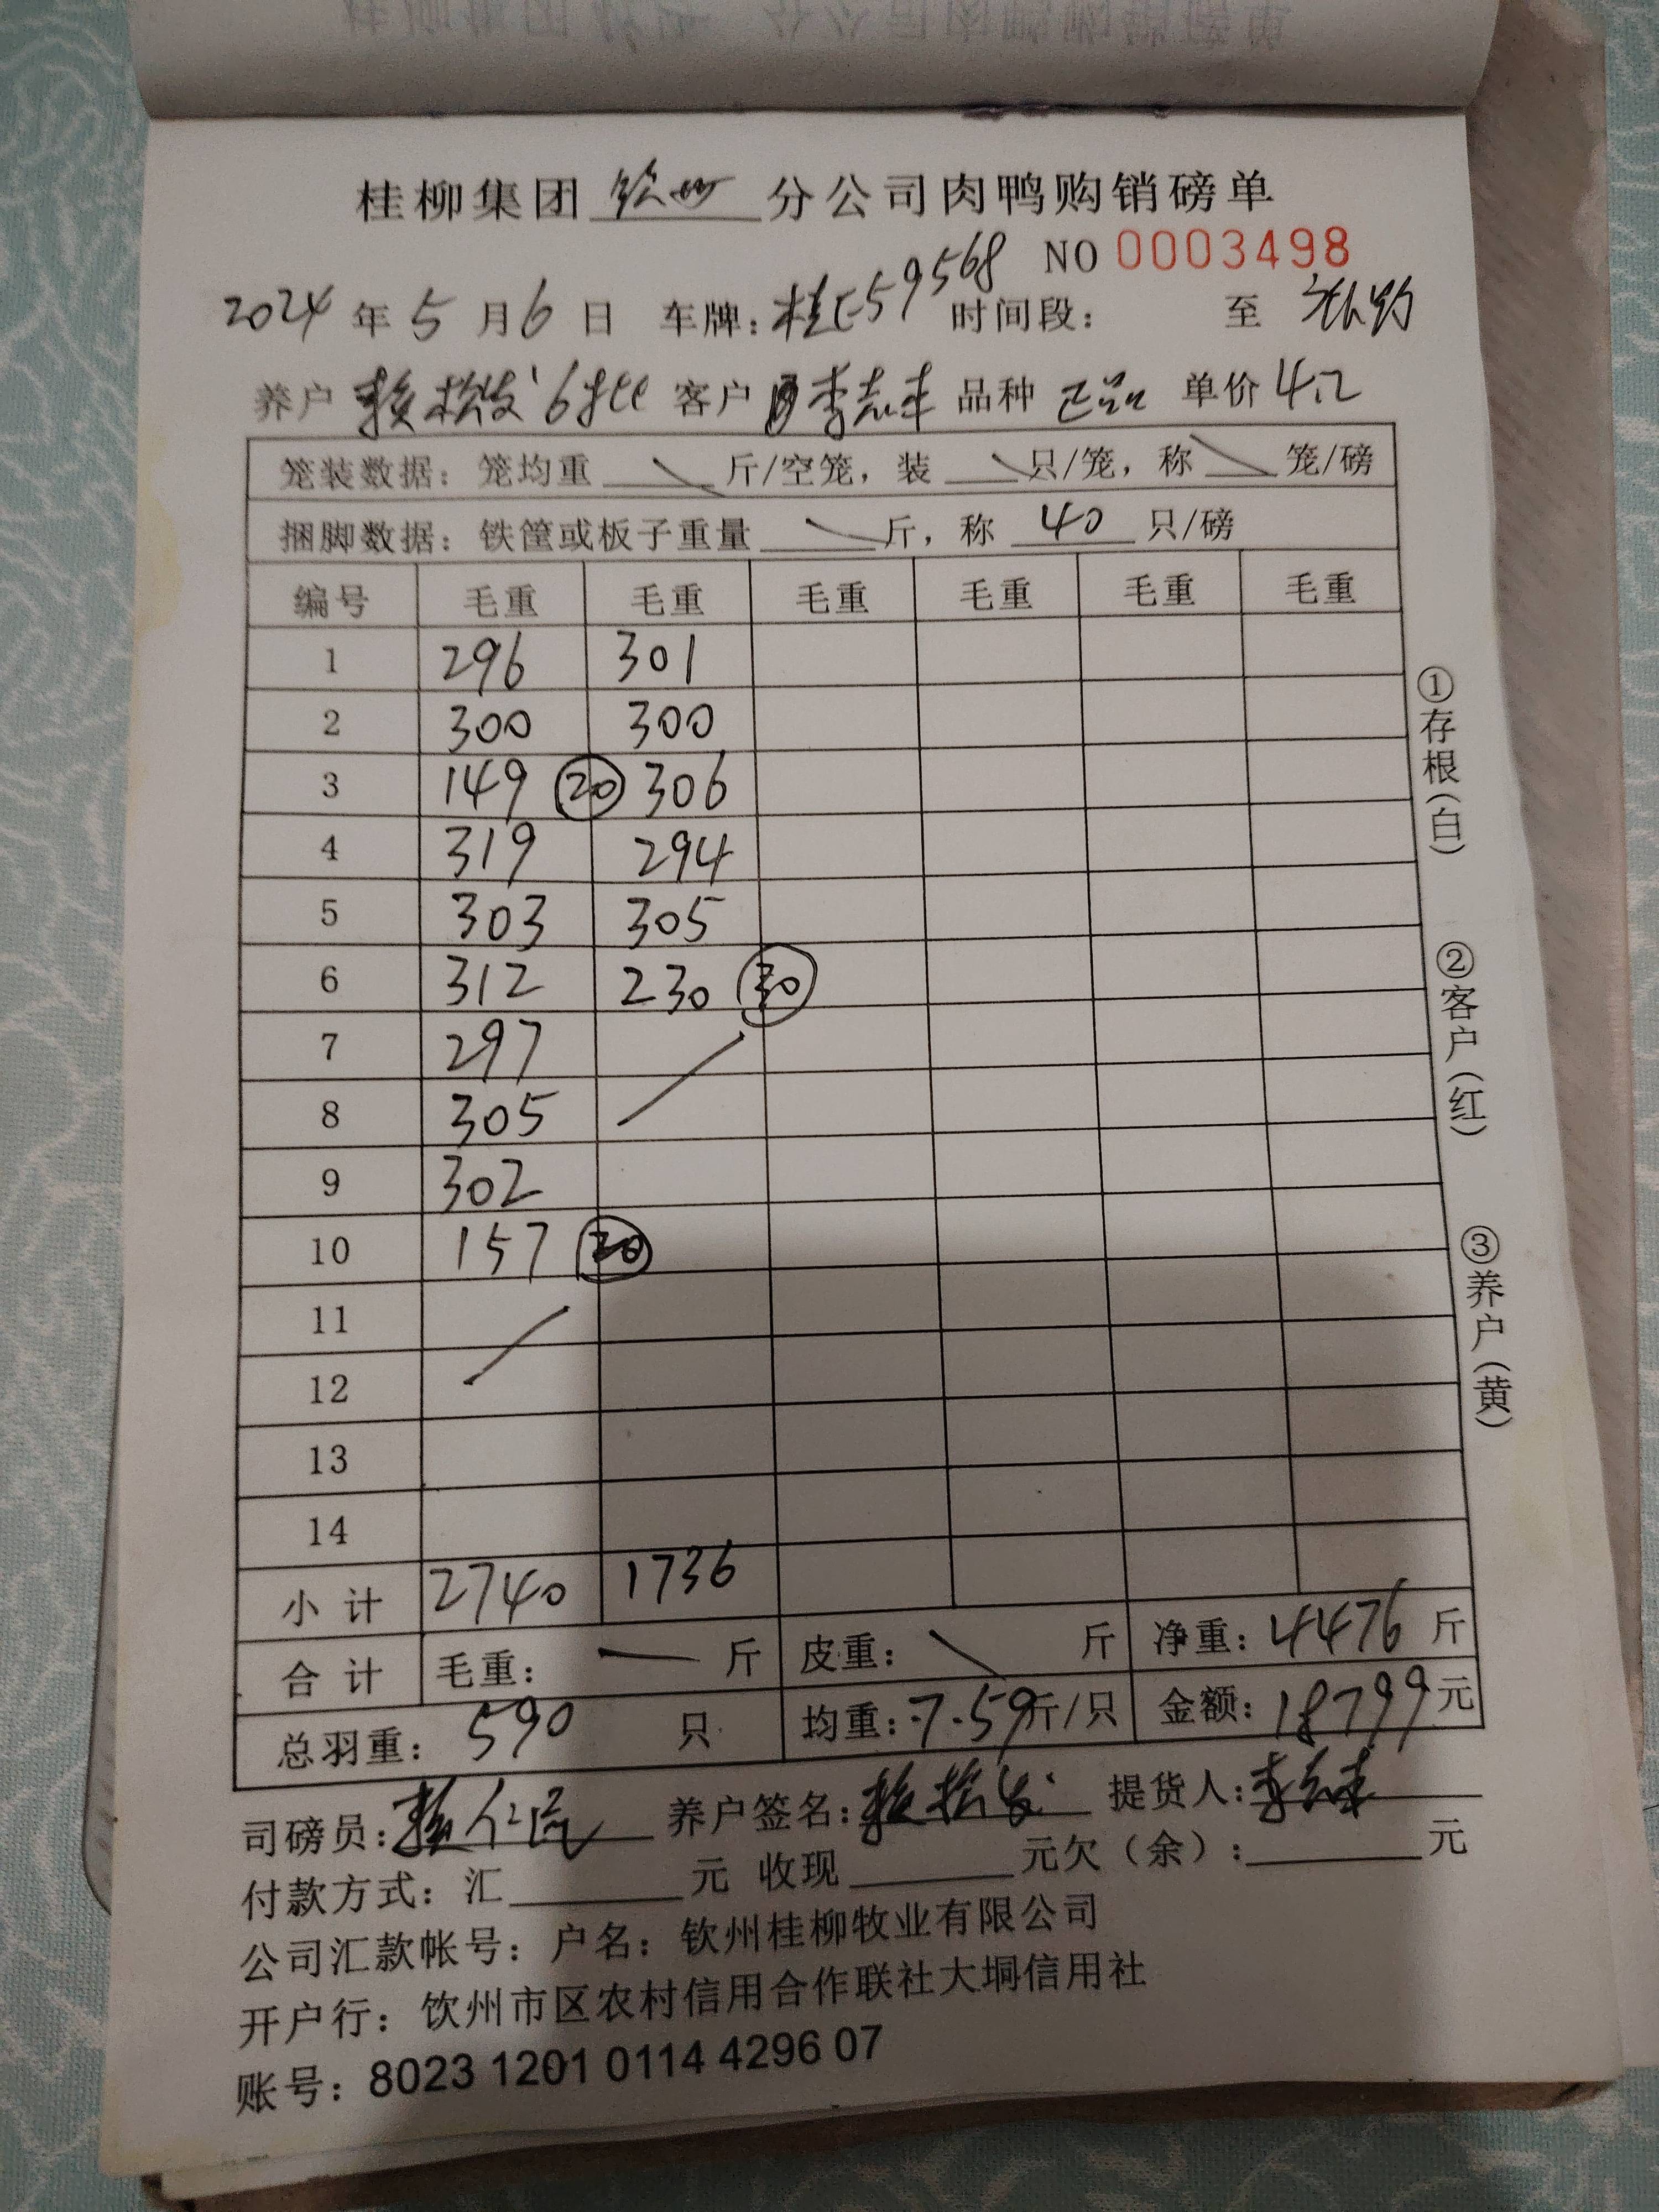 桂柳集团 钦州 分公司肉鸭购销磅单
NO 0003498
2024 年 5 月 6 日 车牌: 桂E59568 时间段: 至
养户 赖松发 6批 客户 李志丰 品种 正品 单价 4.2
笼装数据: 笼均重 斤/空笼, 装 只/笼, 称 笼/磅
捆脚数据: 铁筐或板子重量 斤, 称 40 只/磅
编号 毛重 毛重 毛重 毛重 毛重 毛重
1 296 301
2 300 300
3 149 20 306
4 319 294
5 303 305
6 312 230 30
7 297
8 305
9 302
10 157 20
11
12
13
14
小计 2740 1736
合计 毛重: 斤 皮重: 斤 净重: 4476 斤
总羽重: 590 只 均重: 7.59斤/只 金额: 18799元
司磅员: 养户签名: 赖松发 提货人: 李志丰
付款方式: 汇 元 收现 元欠(余): 元
公司汇款帐号: 户名: 钦州桂柳牧业有限公司
开户行: 钦州市区农村信用合作联社大垌信用社
账号: 8023 1201 0114 4296 07
①存根(白)
②客户(红)
③养户(黄)